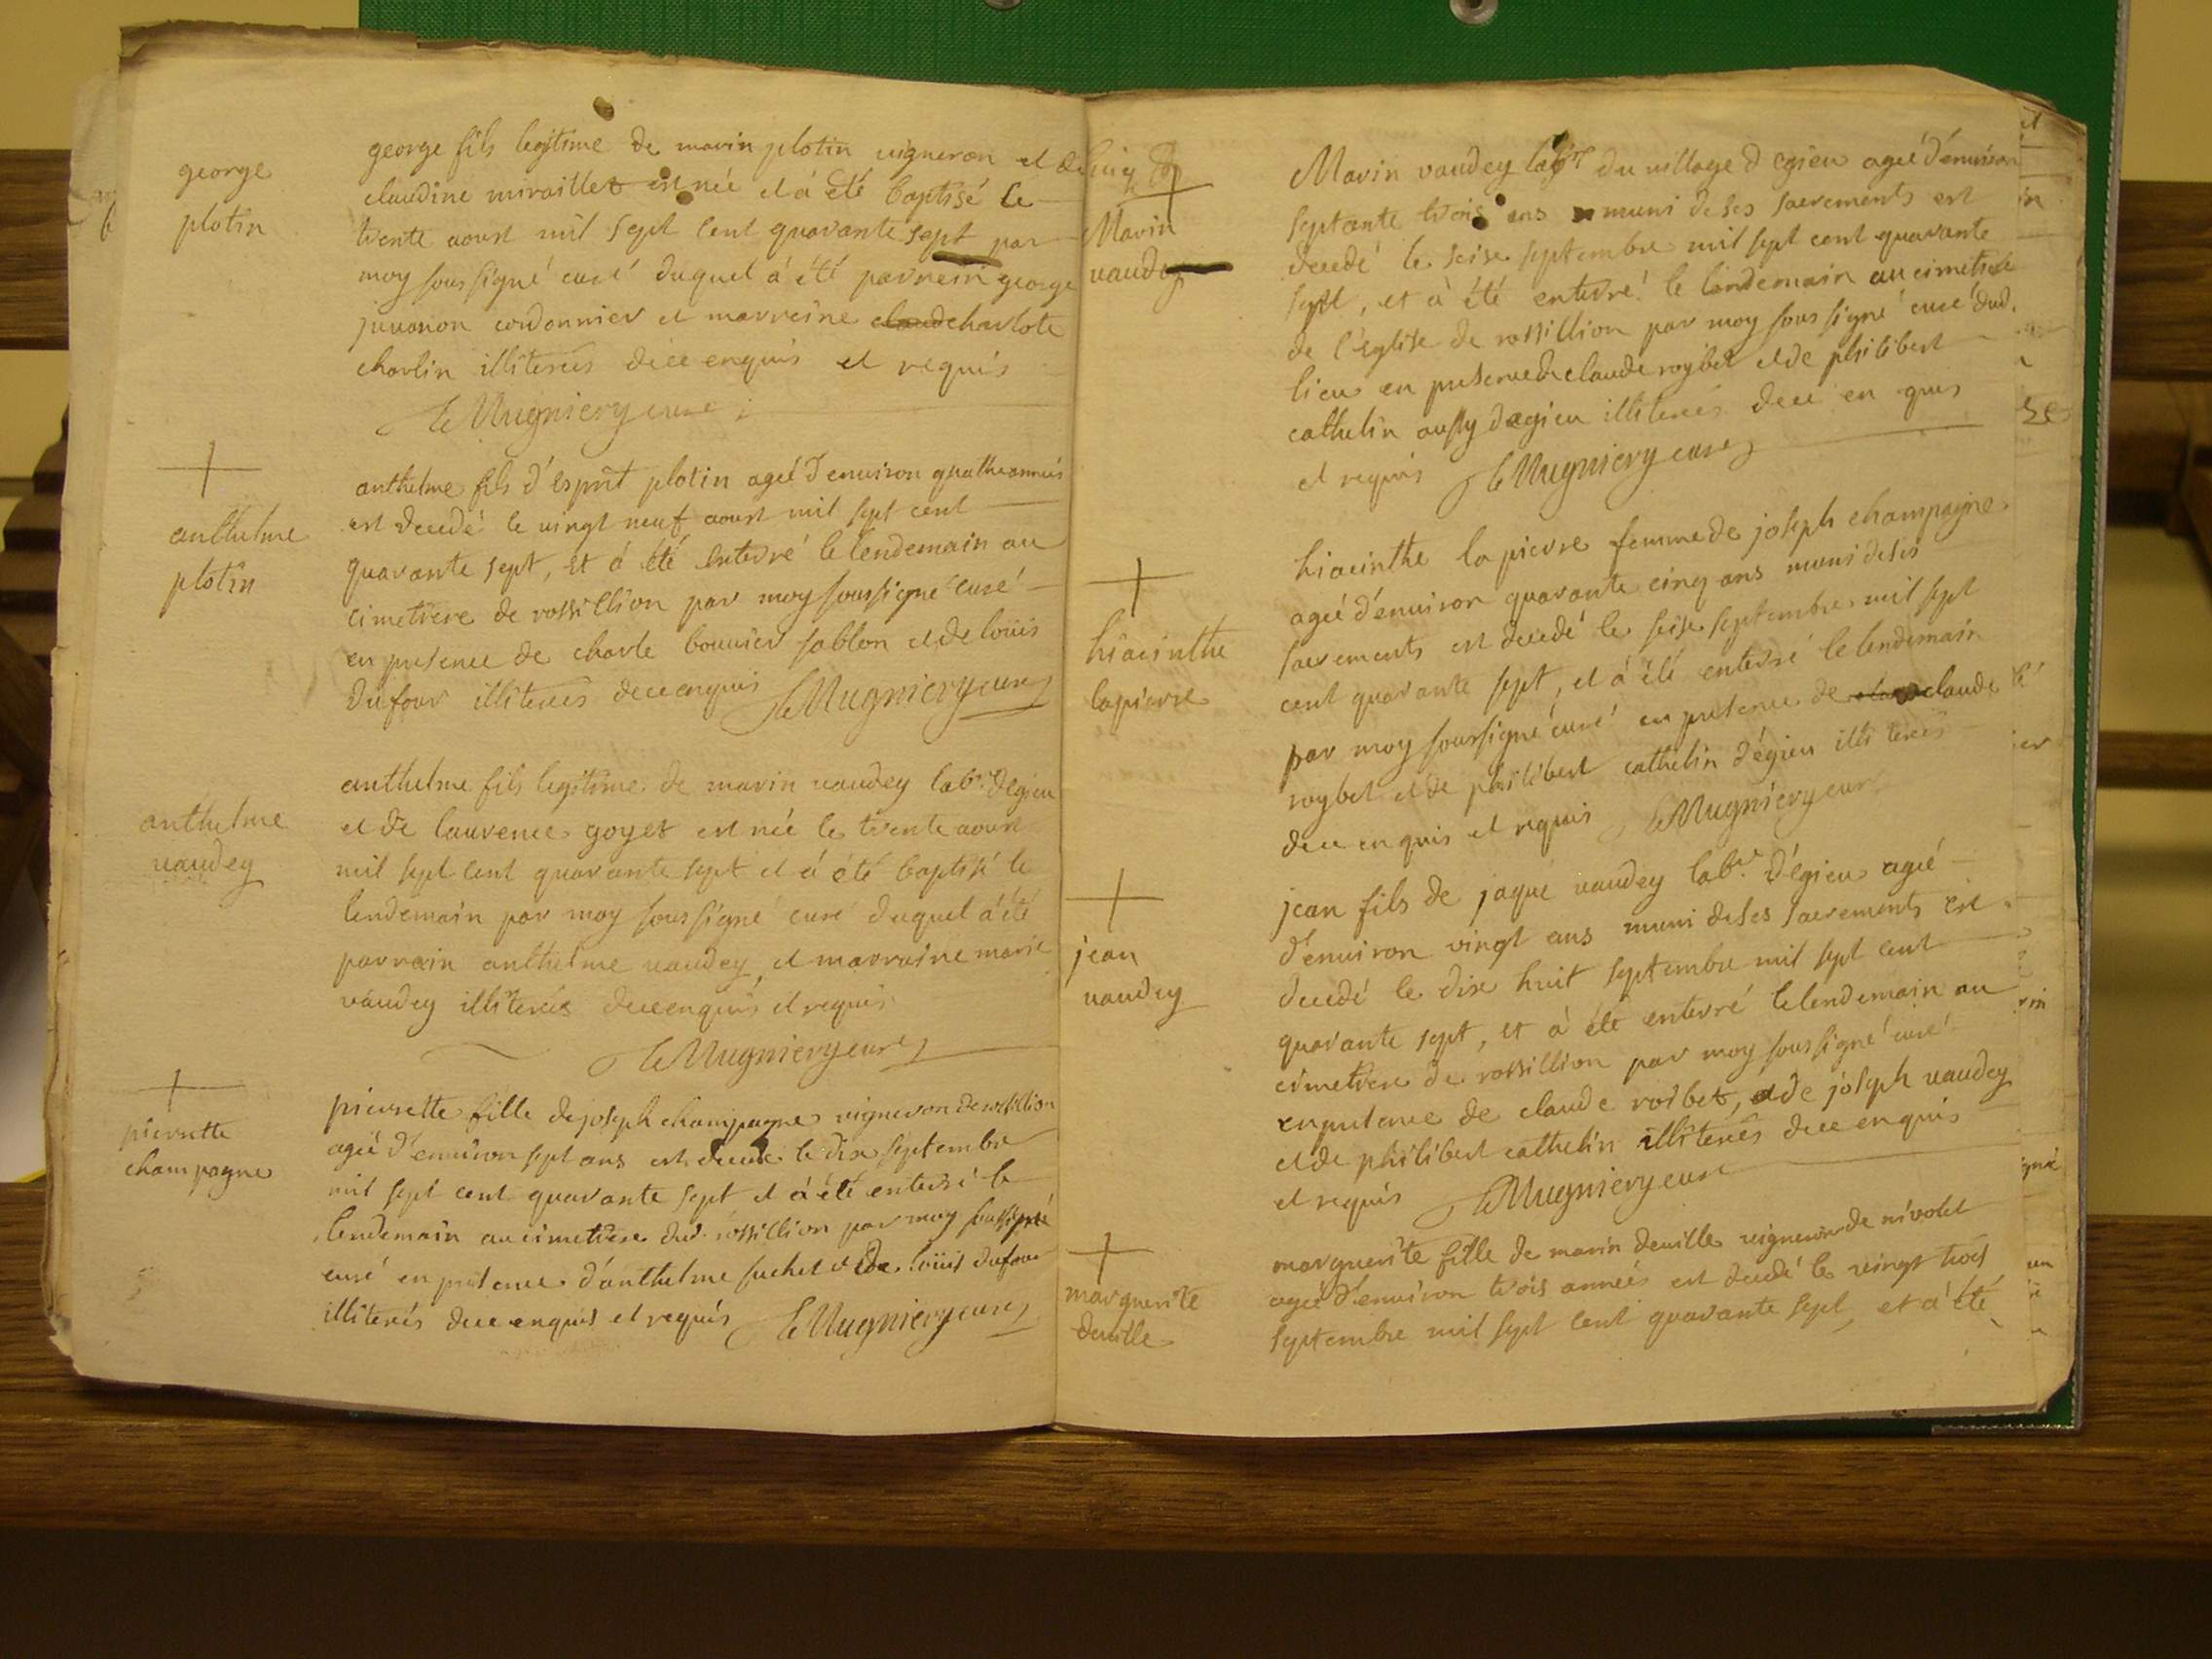 george
plotin
george fils legitime de marin plotin vigneron et de
claudine miraillet est née et à été baptisé le
trente aoust mil sept cent quarante sept par
moy soussigné curé duquel à été parrein george
juvanon cordonnier et marreine charlote
charlin illiterés de ce enquis et requis
Mugniery curé
anthelme
plotin
anthelme fils d'esprit plotin agée d'environ quatre années
est decedé le vingt neuf aoust mil sept cent
quarante sept, et à été enterré le lendemain au
cimetiere de rossillion par moy soussigné curé
en presence de charle bouvier sablon et de loüis
dufour illiterés de ce enquis Mugniery curé
anthelme
vaudey
anthelme fils legitime de marin vaudey labr. d'egieu
et de laurence goyet est née le trente aoust
mil sept cent quarante sept et à été baptisé le
lendemain par moy soussigné curé duquel à été
parrain anthelme vaudey et marraine marie
vaudey illiterés de ce enquis et requis
Mugniery curé
pierrette
champagne
pierrette fille de joseph champagne vigneron de rossillion
agée d'environ sept ans est decedé le dix septembre
mil sept cent quarante sept et à été enterré le
lendemain au cimetiere dud. rossillion par moy soussigné
curé en presence d'anthelme suchet et de loüis dufour
illiterés de ce enquis et requis Mugniery curé
Marin
vaudey
Marin vaudey labr du village d'egieu agée d'environ
septante trois ans muni de ses sacrements est
decedé le seise septembre mil sept cent quarante
sept, et à été enterré le landemain au cimetiere
de l'eglise de rossillion par moy soussigné curé dud.
lieu en presence de claude roybet et de philibert
cathelin aussy d'egieu illiterés de ce enquis
et requis Mugniery curé
hiacinthe
lapierre
hiacinthe lapierre femme de joseph champagne
agée d'environ quarante cinq ans muni de ses
sacrements est decedé le seise septembre mil sept
cent quarante sept, et à été enterré le lendemain
par moy soussigné curé en presence de claude
roybet et de philibert cathelin d'égieu illiterés
de ce enquis et requis Mugniery curé
jean
vaudey
jean fils de jaque vaudey labr. d'égieu agée
d'environ vingt ans muni de ses sacrements est
decedé le dix huit septembre mil sept cent
quarante sept, et à été enterré le lendemain au
cimetiere de rossillion par moy soussigné curé
en presence de claude roibet, et de joseph vaudey
et de philibert cathelin illiterés de ce enquis
et requis Mugniery curé
marguerite
deville
marguerite fille de marin deville vigneron de nivolet
agée d'environ trois années est decedé le vingt trois
septembre mil sept cent quarante sept, et à été